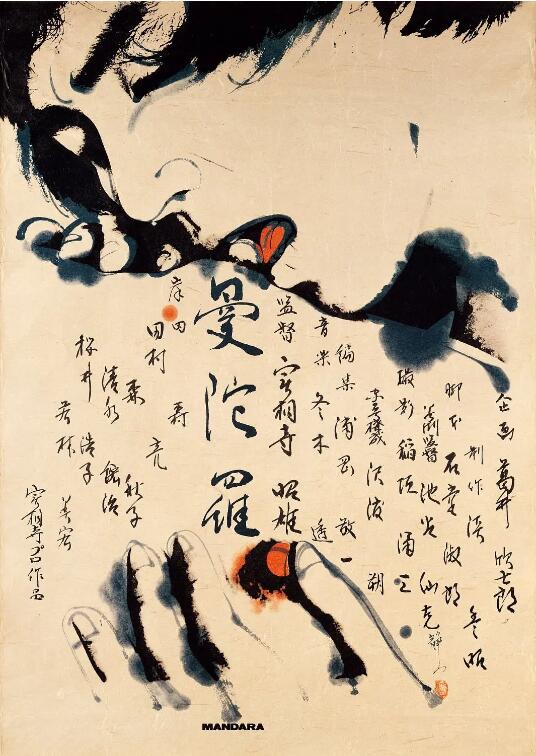 企画 葛井欣士郎
制作 淡 豊昭
脚本 石堂淑朗
美術 池谷仙克
撮影 稲垣涌三
編集 浦岡敬一
音楽 冬木 透
監督 実相寺昭雄
曼陀羅
岸田 森
田村 亮
森 秋子
清水 紘治
桜井 浩子
若林 美宏
実相寺プロ作品
MANDARA